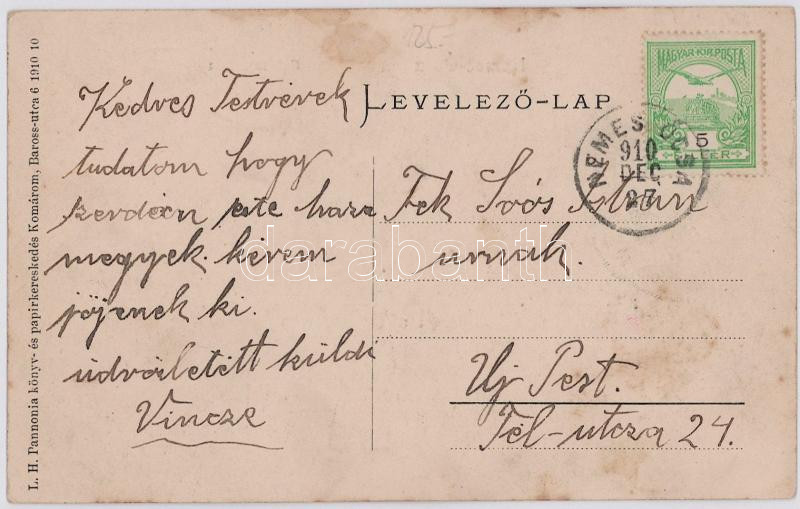 25.-
LEVELEZŐ-LAP
MAGYAR KIR. POSTA
5
FILLÉR
NEMES ÓCSA
910
DEC
27
Kedves Testvérek
tudatom hogy
szerdán este haza
megyek. kérem
jöjenek ki.
üdvözletét küldi
Vincze
Tek Soós Istvan
urnak.
Uj Pest.
Tél-utcza 24.
L. H. Pannonia könyv- és papirkereskedés Komárom, Baross-utca 6 1910 10
darabanth